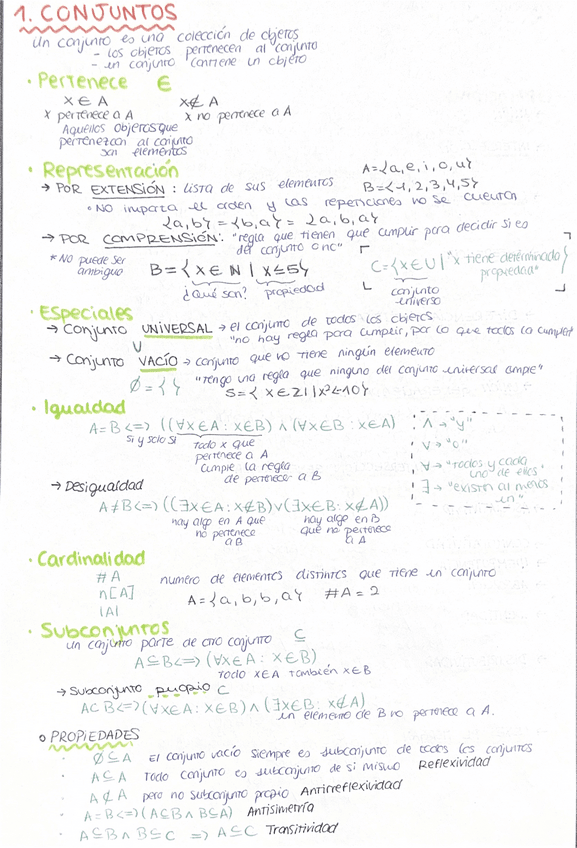 1. CONJUNTOS
Un conjunto es una colección de objetos
- los objetos pertenecen al conjunto
- un conjunto contiene un objeto
· Pertenece ∈
x ∈ A x ∉ A
x pertenece a A x no pertenece a A
Aquellos objetos que
pertenezcan al conjunto
son elementos
· Representación A={a,e,i,o,u}
→ POR EXTENSIÓN: lista de sus elementos B={-1,2,3,4,5}
· NO importa el orden y las repeticiones no se cuentan
{a,b} = {b,a} = {a,b,a}
→ POR COMPRENSIÓN: "regla que tienen que cumplir para decidir si es
del conjunto o no"
*NO puede ser
ambiguo
B={x∈ℕ | x≤5} C={x∈U | "x tiene determinada
propiedad"}
¿Qué son? propiedad conjunto
universo
· Especiales
→ Conjunto UNIVERSAL → el conjunto de todos los objetos
U "no hay regla para cumplir, por lo que todos la cumplen"
→ Conjunto VACÍO → conjunto que no tiene ningún elemento
"Tengo una regla que ninguno del conjunto universal cumple"
∅={ } S={x∈ℤ | x²<-10}
· Igualdad
A=B<=>((∀x∈A: x∈B) ∧ (∀x∈B: x∈A)
si y solo si todo x que
pertenece a A
cumple la regla
de pertenecer a B
∧→"y"
∨→"o"
∀→"todos y cada
uno de ellos"
∃→"existen al menos
un"
→ Desigualdad
A≠B<=>((∃x∈A: x∉B)∨(∃x∈B: x∉A))
hay algo en A que hay algo en B
no pertenece que no pertenece
a B a A
· Cardinalidad
#A numero de elementos distintos que tiene un conjunto
n[A] A={a,b,b,a} #A=2
|A|
· Subconjuntos
un conjunto parte de otro conjunto ⊆
A⊆B<=>(∀x∈A: x∈B)
todo x∈A también x∈B
→ Subconjunto propio ⊂
A⊂B<=>(∀x∈A: x∈B)∧(∃x∈B: x∉A)
un elemento de B no pertenece a A.
o PROPIEDADES
· ∅⊆A El conjunto vacío siempre es subconjunto de todos los conjuntos
· A⊆A Todo conjunto es subconjunto de si mismo Reflexividad
· A⊄A pero no subconjunto propio Antirreflexividad
· A=B<=>(A⊆B∧B⊆A) Antisimetría
· A⊆B∧B⊆C => A⊆C Transitividad